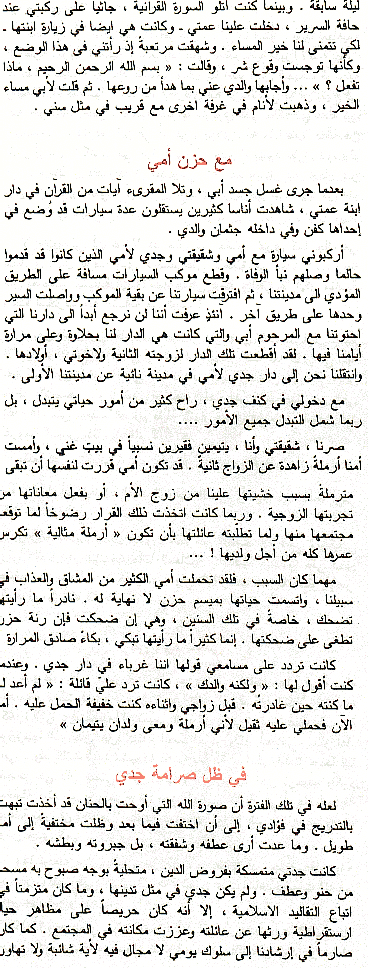 ليلة سابقة . وبينما كنت أتلو السورة القرآنية ، جاثياً على ركبتي عند
حافة السرير ، دخلت علينا عمتي . وكانت هي أيضاً في زيارة ابنتها .
لكي تتمنى لنا خير المساء . وشهقت مرتعبةً إذ رأتني في هذا الوضع ،
وكأنها توجست وقوع شر ، وقالت : « بسم الله الرحمن الرحيم ، ماذا
تفعل ؟ » ... وأجابها والدي عني بما هدأ من روعها . ثم قلت لأبي مساء
الخير ، وذهبت لأنام في غرفة اخرى مع قريب في مثل سني .
مع حزن أمي
بعدما جرى غسل جسد أبي ، وتلا المقرىء آيات من القرآن في دار
ابنة عمتي ، شاهدت أناسا كثيرين يستقلون عدة سيارات قد وُضع في
إحداها كفن وفي داخله جثمان والدي .
أركبوني سيارة مع أمي وشقيقتي وجدي لأمي الذين كانوا قد قدموا
حالما وصلهم نبأ الوفاة . وقطع موكب السيارات مسافة على الطريق
المؤدي الى مدينتنا ، ثم افترقت سيارتنا عن بقية الموكب وواصلت السير
وحدها على طريق آخر . انئذٍ عرفت أننا لن نرجع أبداً الى دارنا التي
احتوتنا مع المرحوم أبي والتي كانت هي الدار لنا بحلاوة وعلى مرارة
أيامنا فيها . لقد أقطعت تلك الدار لزوجته الثانية ولاخوتي ، أولادها .
وانتقلنا نحن إلى دار جدي لأمي في مدينة نائية عن مدينتنا الأولى .
مع دخولي في كنف جدي ، راح كثير من أمور حياتي يتبدل ، بل
ربما شمل التبدل جميع الأمور ....
صرنا ، شقيقتي وأنا ، يتيمين فقيرين نسبياً في بيتِ غني ، وأمست
أمنا أرملة زاهدة عن الزواج ثانيةً . قد تكون أمي قررت لنفسها أن تبقى
مترملة بسبب خشيتها علينا من زوج الأم ، أو بفعل معاناتها من
تجربتها الزوجية . وربما كانت اتخذت ذلك القرار رضوخاً لما توقعه
مجتمعها منها ولما تطلبته عائلتها بأن تكون « أرملة مثالية » تكرس
عمرها كله من أجل ولديها ! ...
مهما كان السبب ، فلقد تحملت أمي الكثير من المشاق والعذاب في
سبيلنا ، واتسمت حياتها بميسم حزن لا نهاية له . نادراً ما رأيتها
تضحك ، خاصةً في تلك السنين ، وهي إن ضحكت فإن رنة حزن
تطغى على ضحكتها . إنما كثيراً ما رأيتها تبكي ، بكاءً صادق المرارة
كانت تردد على مسامعي قولها اننا غرباء في دار جدي . وعندما
كنت أقول لها : « ولكنه والدك » ، كانت ترد عليّ قائلة : « لم أعد له
ما كنته حين غادرته . قبل زواجي واثناءه كنت خفيفة الحمل عليه . أما
الآن فحملي عليه ثقيل لأني أرملة ومعي ولدان يتيمان »
في ظل صرامة جدي
لعله في تلك الفترة أن صورة الله التي أوحت بالحنان قد أخذت تبهت
بالتدريج في فؤادي ، إلى أن اختفت فيما بعد وظلت مختفيةً إلى أمد
طويل . وما عدت أرى عطفه وشفقته ، بل جبروته وبطشه .
كانت جدتي متمسكة بفروض الدين ، متحليةً بوجه صبوح به مسحة
من حنو وعطف . ولم يكن جدي في مثل تدينها ، وما كان متزمتاً في
اتباع التقاليد الاسلامية ، إلا أنه كان حريصاً على مظاهر حياة
ارستقراطية ورثها عن عائلته وعززت مكانته في المجتمع . كما كان
صارماً في إرشادنا إلى سلوك يومي لا مجال فيه لأية شائبة ولا تهاون